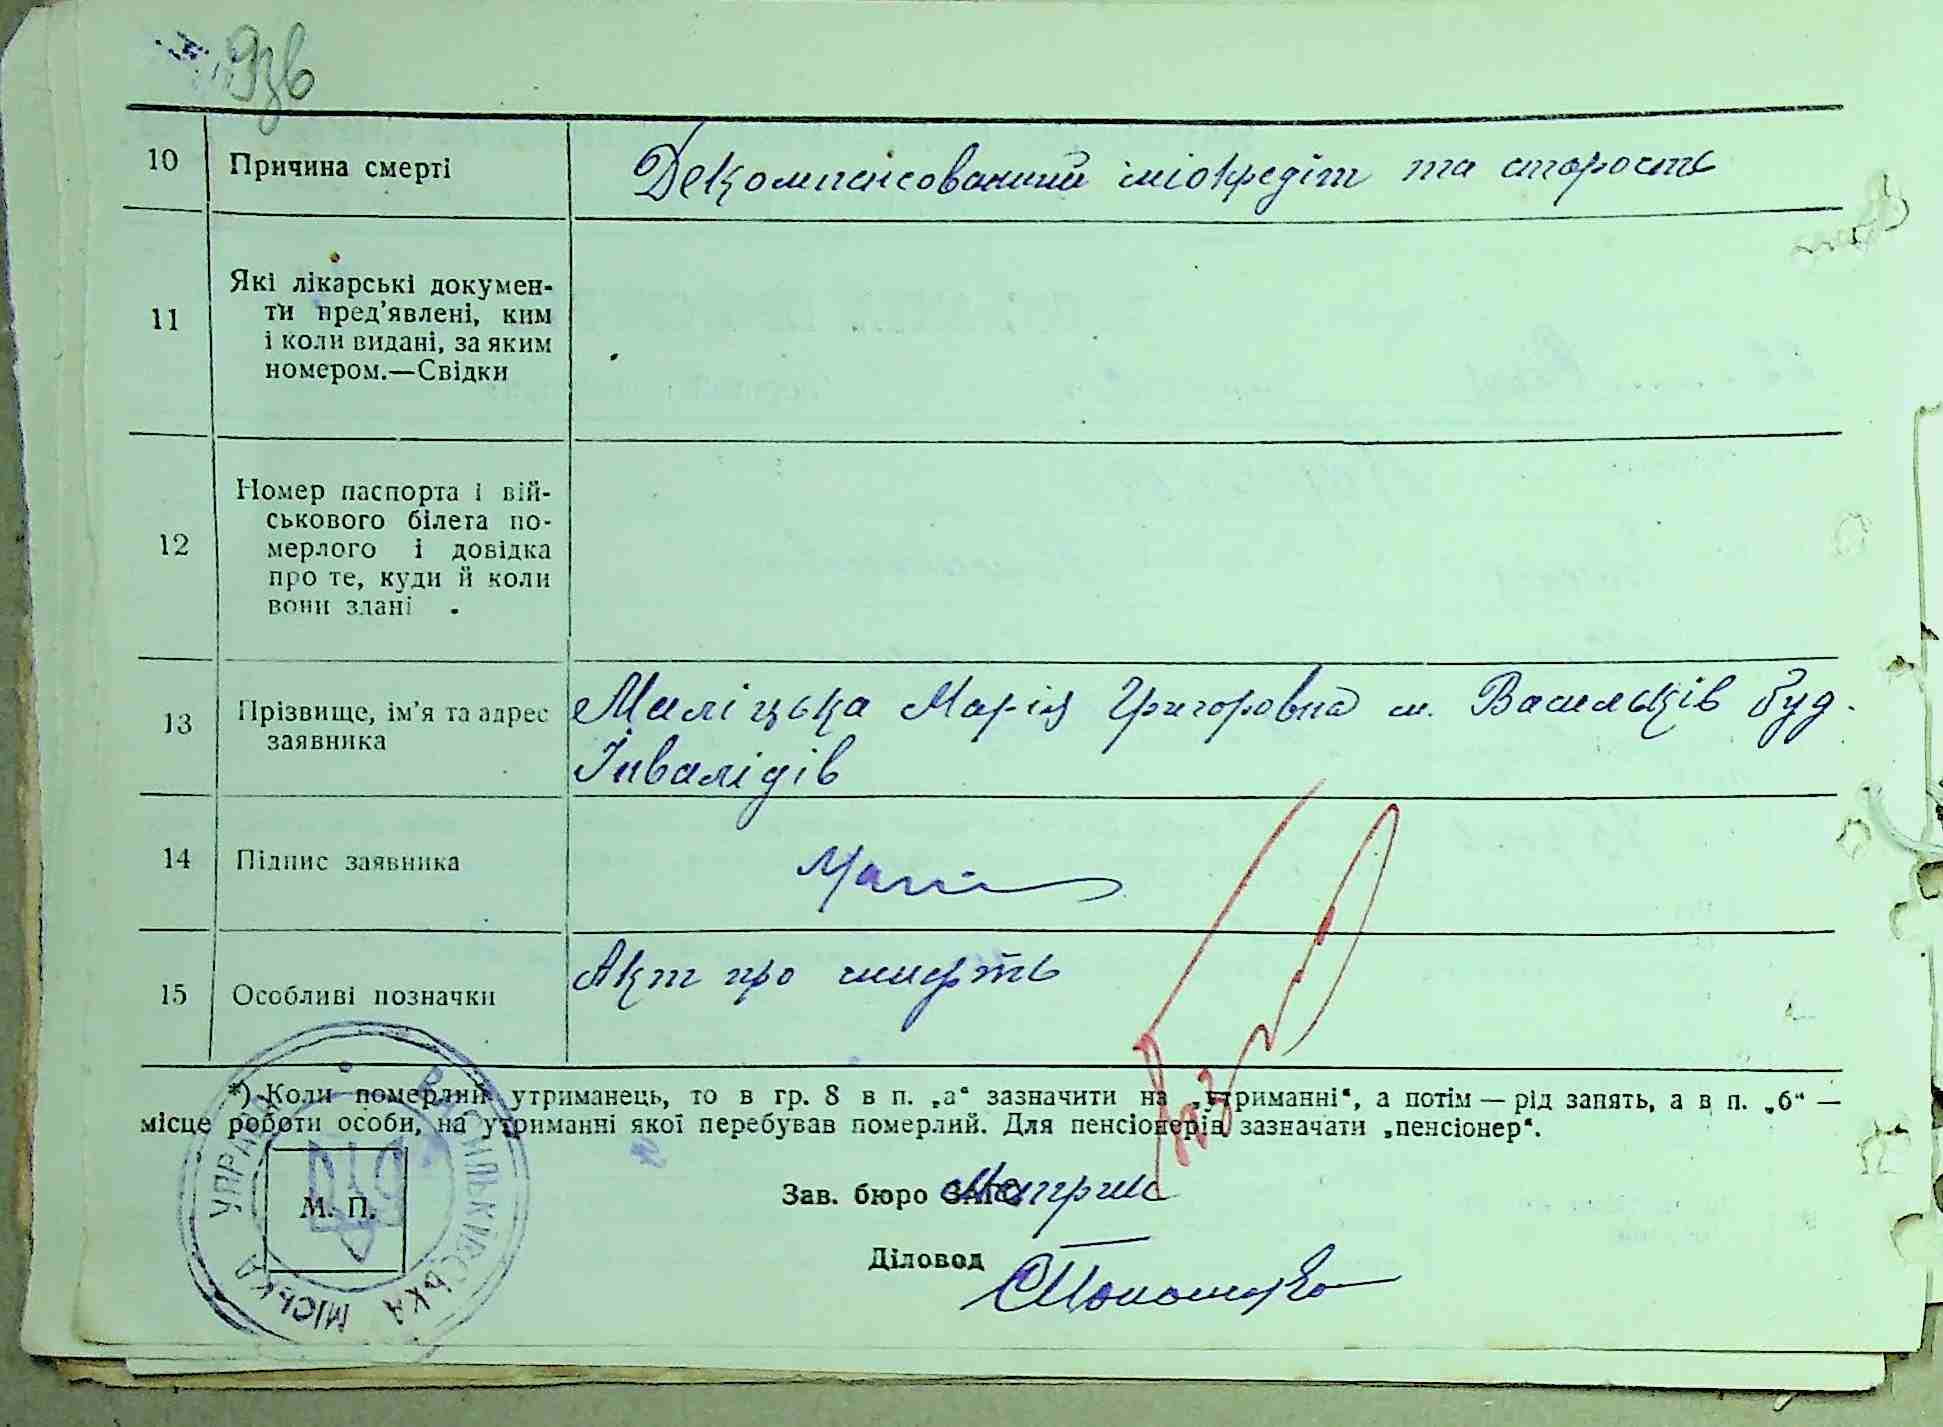 93б
10 Причина смерті Декомпенсований міокредіт та старость
11 Які лікарські докумен-
ти пред’явлені, ким
і коли видані, за яким
номером.—Свідки
12 Номер паспорта і вій-
ськового білета по-
мерлого і довідка
про те, куди й коли
вони здані
13 Прізвище, ім’я та адрес
заявника
Миліцька Марія Григоровна м. Васильків буд.
Інвалідів
14 Підпис заявника
15 Особливі позначки Акт про смерть
*) Коли померлий утриманець, то в гр. 8 в п. „а“ зазначити на „утриманні“, а потім — рід занять, а в п. „б“ —
місце роботи особи, на утриманні якої перебував померлий. Для пенсіонерів зазначати „пенсіонер“.
М. П.
ВАСИЛЬКІВСЬКА МІСЬКА УПРАВА
Зав. бюро ЗАГС
Діловод